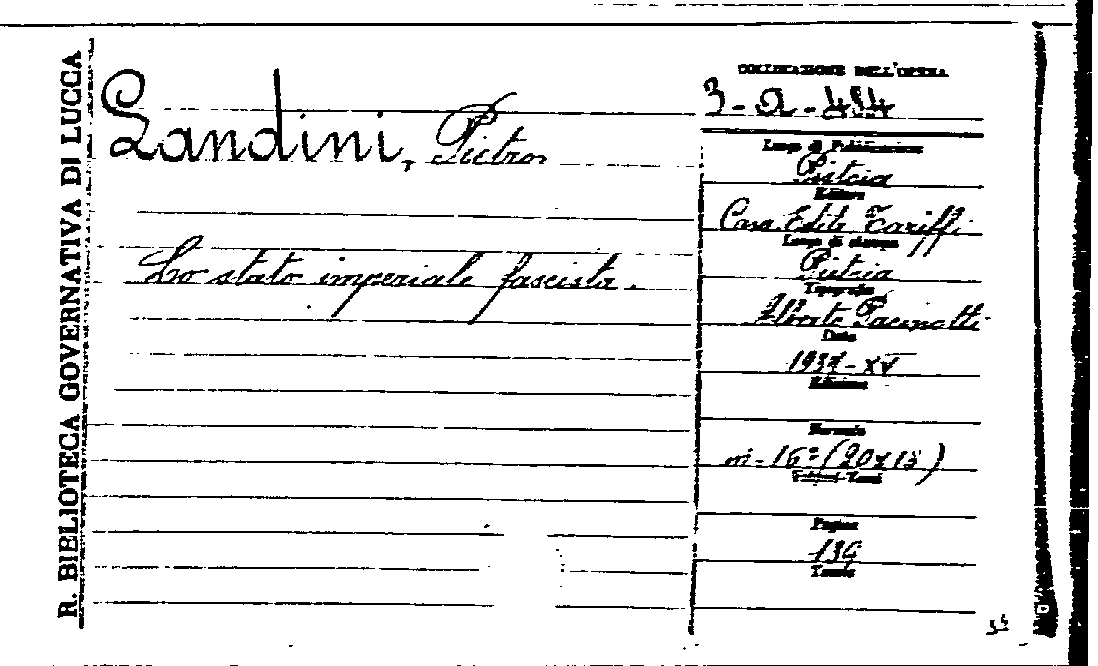 R. BIBLIOTECA GOVERNATIVA DI LUCCA
Landini, Pietro
Lo stato imperiale fascista.
COLLOCAZIONE DELL'OPERA
3-a-484
Luogo di Pubblicazione
Pistoia
Editore
Casa Edit. Tariffi
Luogo di stampa
Pistoia
Tipografia
Alberto Pacinotti
Data
1937-XV
Edizione
Formato
in-16° (20x13)
Volumi Tomi
Pagine
139
Tavole